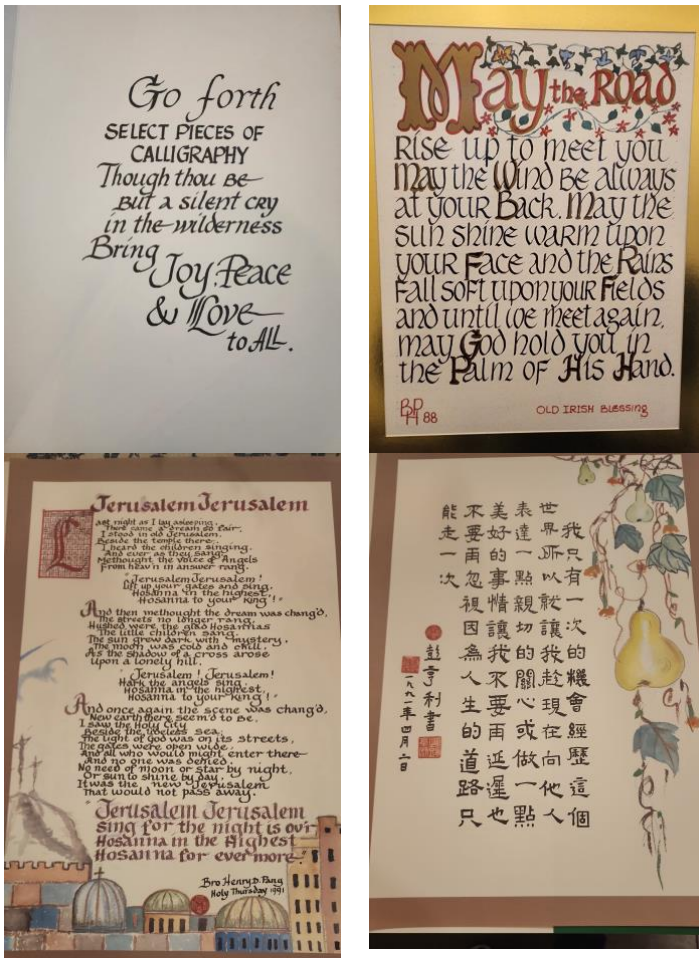 Go forth
SELECT PIECES OF
CALLIGRAPHY
Though thou BE
BUT a silent cry
in the wilderness
Bring
Joy, Peace
& Love
to ALL.
May the Road
Rise up to meet you
May the Wind Be always
at your Back. May the
sun shine warm upon
your Face and the Rains
Fall soft upon your Fields
and until we meet again,
may God hold you in
the Palm of His Hand.
BP
H 88
OLD IRISH BLESSING
Jerusalem Jerusalem
Last night as I lay asleeping,
There came a dream so fair,
I stood in old Jerusalem,
Beside the temple there.
I heard the children singing,
And ever as they sang,
Methought the voice of Angels
From heav'n in answer rang.
"Jerusalem Jerusalem!
Lift up your gates and sing,
Hosanna in the highest,
Hosanna to your King!"
And then methought the dream was chang'd,
The streets no longer rang,
Hushed were the glad Hosannas
The little children sang.
The sun grew dark with mystery,
The moon was cold and chill,
As the shadow of a cross arose
Upon a lonely hill.
"Jerusalem! Jerusalem!
Hark the angels sing,
Hosanna in the highest,
Hosanna to your King!"
And once again the scene was chang'd,
New earth there seem'd to be,
I saw the Holy City
Beside the tideless sea.
The light of God was on its streets,
The gates were open wide,
And all who would might enter there
And no one was denied.
No need of moon or star by night,
Or sun to shine by day,
It was the new Jerusalem
That would not pass away.
"Jerusalem Jerusalem
Sing for the night is ov'r
Hosanna in the Highest
Hosanna for ever more"
Bro Henry D. Pang
Holy Thursday 1991
我只有一次的機會經歷這個
世界所以就讓我趁現在向他人
表達一點親切的關心或做一點
美好的事情讓我不要再延遲也
不要再忽視因為人生的道路只
能走一次
彭亨利書
一九九一年四月二日